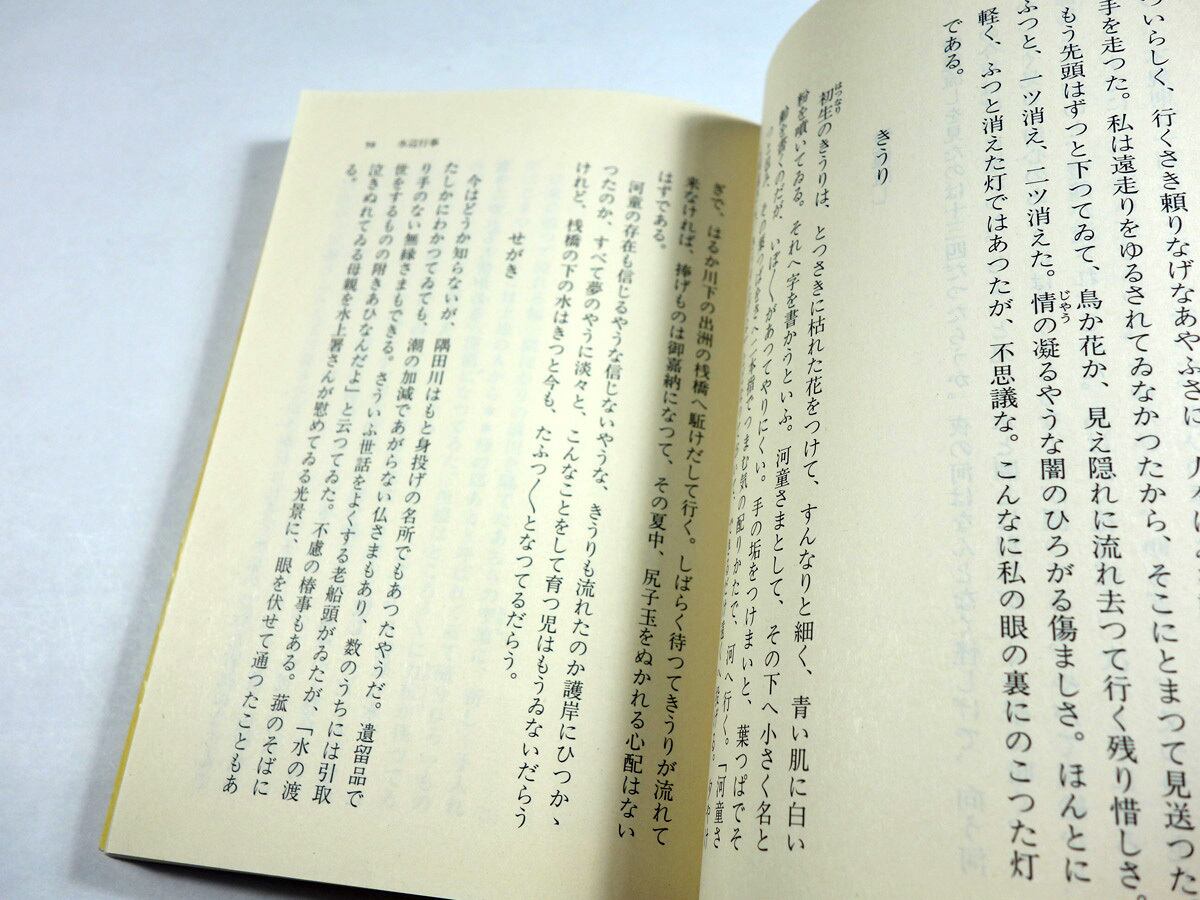 いらしく、行くさき頼りなげなあやふさに
手を走つた。私は遠走りをゆるされてゐなかつたから、そこにとまつて見送つた
もう先頭はずつと下つてゐて、鳥か花か、見え隠れに流れ去つて行く残り惜しさ。
ふつと、一ツ消え、二ツ消えた。情の凝るやうな闇のひろがる傷ましさ。ほんとに
じやう
軽く、ふつと消えた灯ではあつたが、不思議な。こんなに私の眼の裏にのこつた灯
である。
きうり
初生のきうりは、とつさきに枯れた花をつけて、すんなりと細く、青い肌に白い
はつなり
粉を噴いてゐる。それへ字を書かうといふ。河童さまとして、その下へ小さく名と
いぼ〳〵があつてやりにくい。手の垢をつけまいと、葉つぱでそ
二本指でつまむ気の配りかたで、河へ行く。「河童さ
98 水辺行事
ぎで、はるか川下の出洲の桟橋へ駈けだして行く。しばらく待つてきうりが流れて
来なければ、捧げものは御嘉納になつて、その夏中、尻子玉をぬかれる心配はない
はずである。
河童の存在も信じるやうな信じないやうな、きうりも流れたのか護岸にひつか、
つたのか、すべて夢のやうに淡々と、こんなことをして育つ児はもうゐないだらう
けれど、桟橋の下の水はきつと今も、たぷ〳〵となつてるだらう。
せがき
今はどうか知らないが、隅田川はもと身投げの名所でもあつたやうだ。遺留品で
たしかにわかつてゐても、潮の加減であがらない仏さまもあり、数のうちには引取
り手のない無縁さまもできる。さういふ世話をよくする老船頭がゐたが、「水の渡
世をするものの附きあひなんだよ」と云つてゐた。不慮の椿事もある。菰のそばに
泣きぬれてゐる母親を水上署さんが慰めてゐる光景に、眼を伏せて通つたこともあ
る。